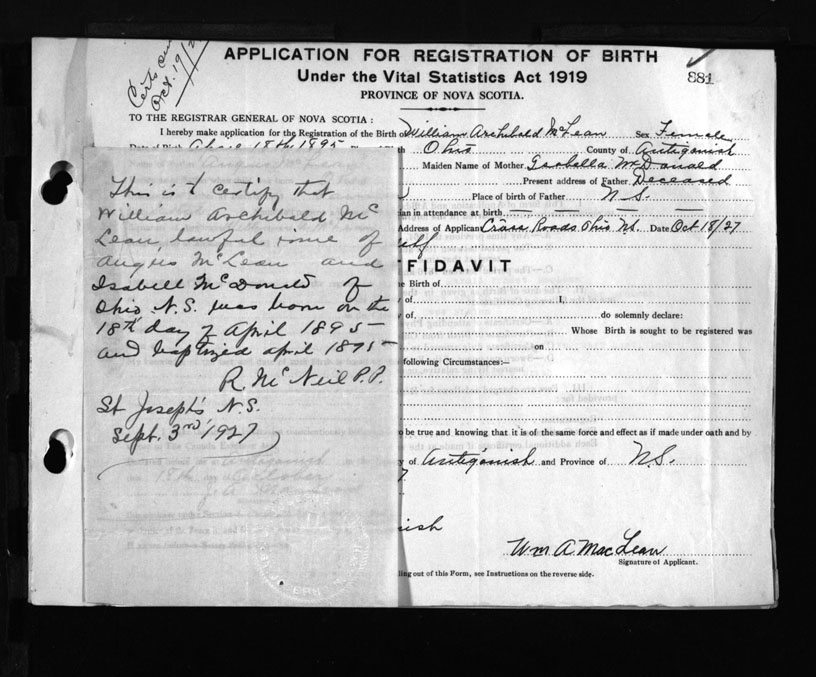 Certs
Oct. 19/2
APPLICATION FOR REGISTRATION OF BIRTH
Under the Vital Statistics Act 1919
881
PROVINCE OF NOVA SCOTIA.
TO THE REGISTRAR GENERAL OF NOVA SCOTIA :
I hereby make application for the Registration of the Birth of William Archibald McLean Sex Female
April 18th 1895 Ohio County of Antigonish
Maiden Name of Mother Isabella McDonald
Present address of Father Deceased
Place of birth of Father N.S.
ian in attendance at birth — — — —
Address of Applicant Cross Roads Ohio N.S. Date Oct 18/27
elf
FIDAVIT
e Birth of
of I,
of do solemnly declare:
Whose Birth is sought to be registered was
on
following Circumstances:—
o be true and knowing that it is of the same force and effect as if made under oath and by
y of Antigonish and Province of N.S.
nish
Wm A. MacLean
Signature of Applicant.
ling out of this Form, see Instructions on the reverse side.
This is to certify that
William Archibald Mc
Lean, lawful of
Angus McLean and
Isabell McDonald of
Ohio N.S. was born on the
18th day of April 1895
and baptized April 1895
R. McNeil P.P.
St Joseph's N.S.
Sept. 3rd 1927